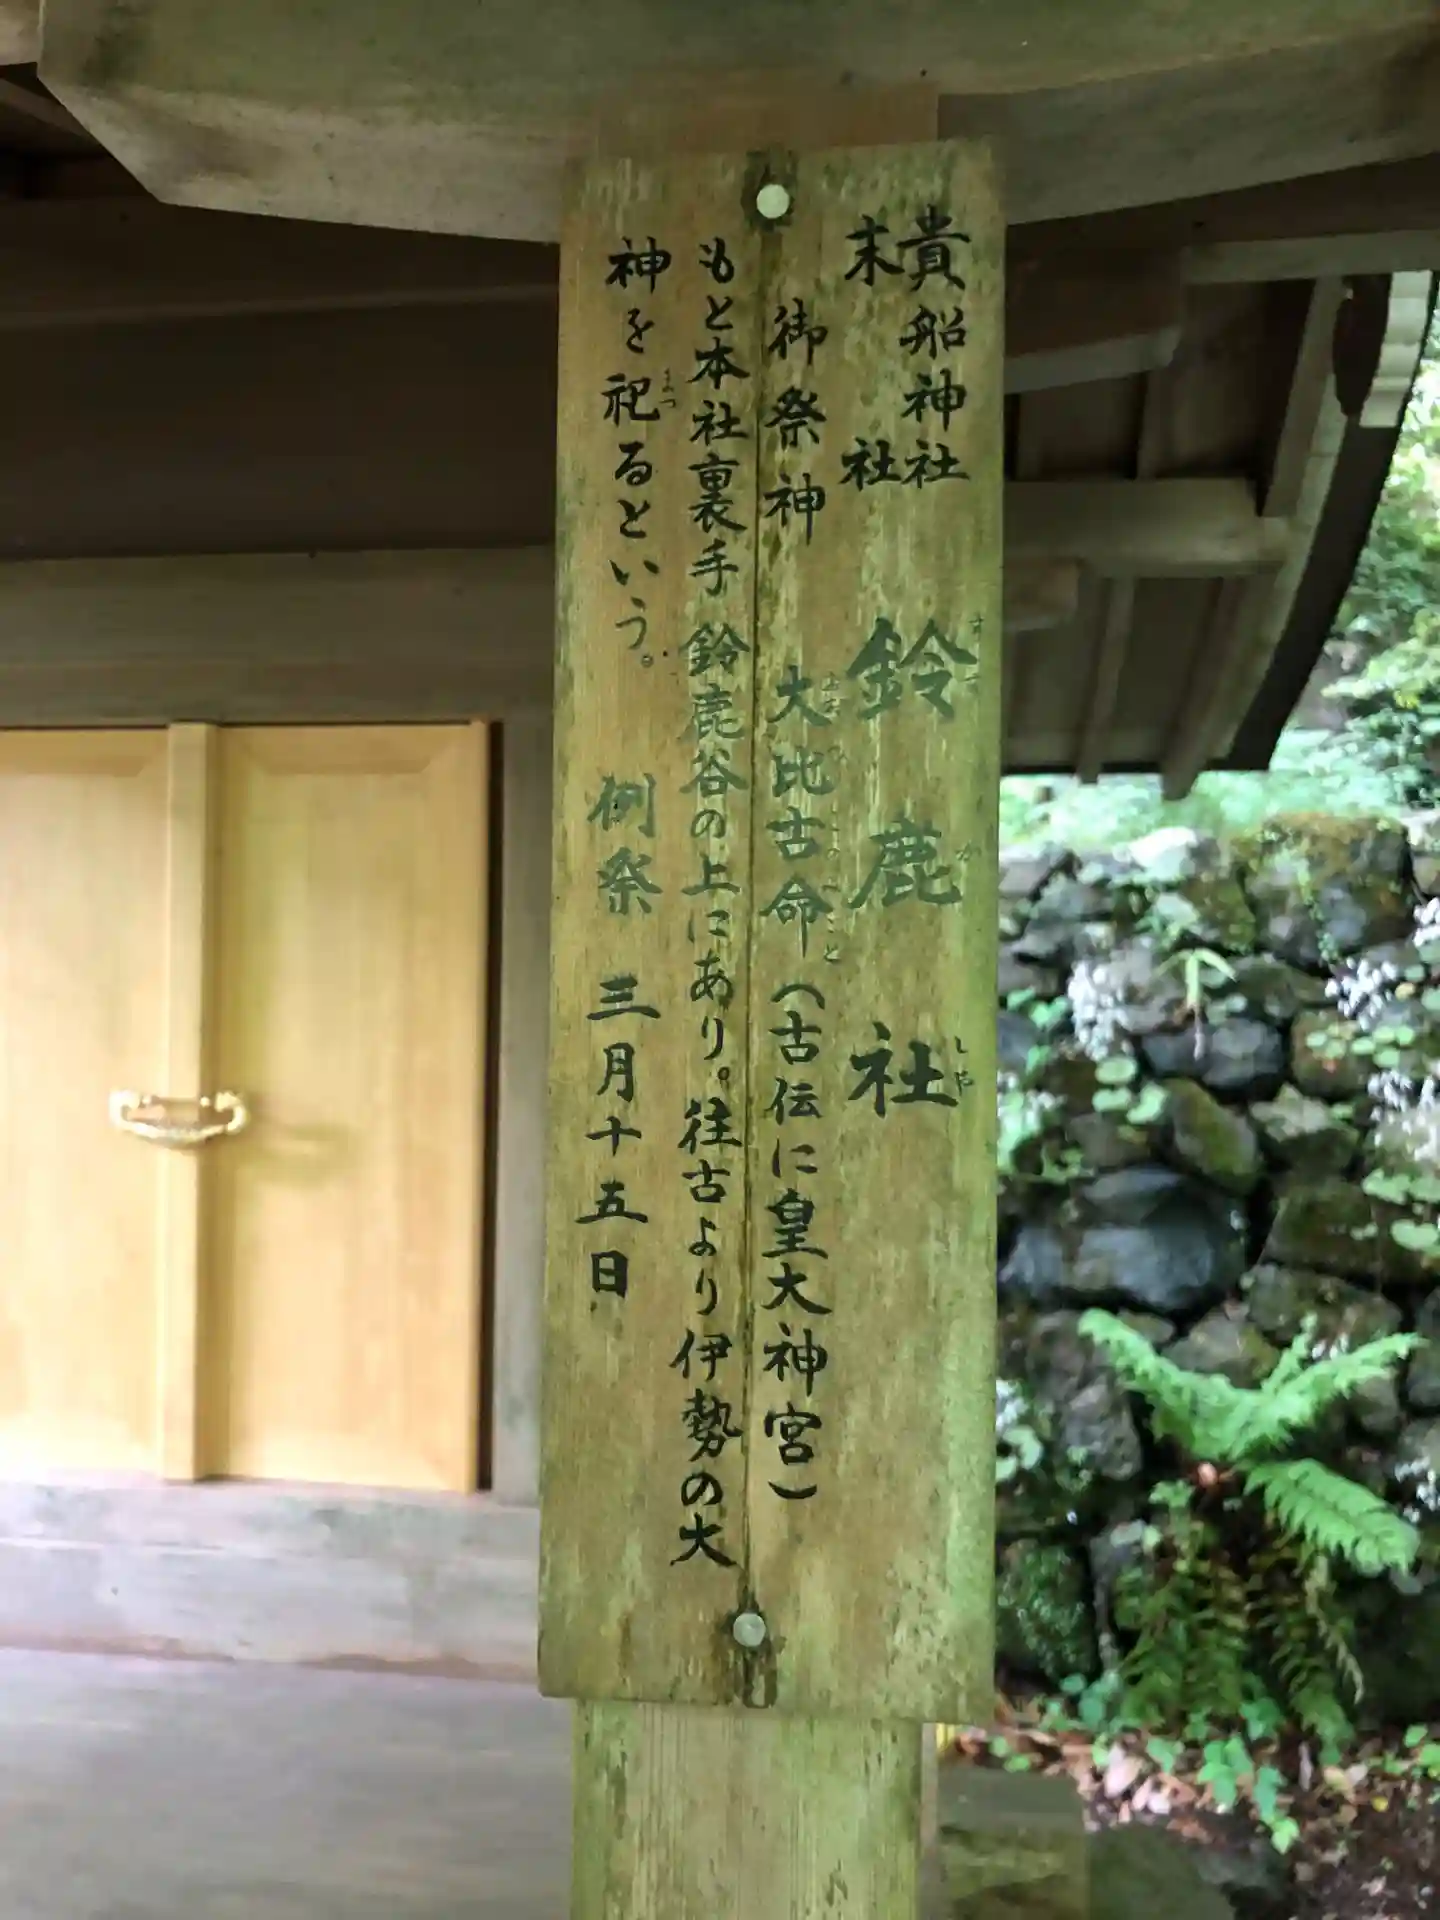 貴船神社
末社
鈴鹿社
すずかしゃ
御祭神 大比古命（古伝に皇大神宮）
もと本社裏手 鈴鹿谷の上にあり。往古より伊勢の大
神を祀るという。 例祭 三月十五日
まつ